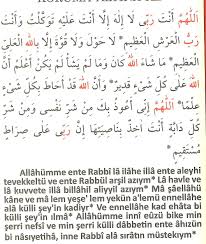 اَللّٰهُمَّ اَنْتَ رَبِّى لَا اِلٰهَ اِلَّا اَنْتَ عَلَيْهِ تَوَكَّلْتُ وَاَنْتَ
رَبُّ الْعَرْشِ الْعَظِيمِ * لَا حَوْلَ وَلَا قُوَّةَ اِلَّا بِاللّٰهِ الْعَلِىِّ
الْعَظِيمِ * مَا شَاءَ اللّٰهُ كَانَ وَمَا لَمْ يَشَأْ لَمْ يَكُنْ اَعْلَمُ اَنَّ اللّٰهَ
عَلٰى كُلِّ شَىْءٍ قَدِيرٌ * وَاَنَّ اللّٰهَ قَدْ اَحَاطَ بِكُلِّ شَىْءٍ
عِلْمًا * اَللّٰهُمَّ اِنِّى اَعُوذُ بِكَ مِنْ شَرِّ نَفْسِى وَمِنْ شَرِّ
كُلِّ دَابَّةٍ اَنْتَ اٰخِذٌ بِنَاصِيَتِهَا اِنَّ رَبِّى عَلٰى صِرَاطٍ
مُسْتَقِيمٍ *
Allâhümme ente Rabbî lâ ilâhe illâ ente aleyhi
tevekkeltü ve ente Rabbül arşil azıym* Lâ havle ve
lâ kuvvete illâ billâhil aliyyil azıym* Mâ şâellâhü
kâne ve mâ lem yeşe' lem yekün a'lemü ennellâhe
alâ külli şey'in kadiyr* Ve ennellâhe kad ehâta bi
külli şey'in ılmâ* Allâhümme innî eûzü bike min
şerri nefsî ve min şerri külli dâbbetin ente âhızün
bi nâsıyetihâ, inne Rabbî alâ sırâtın müstekıym*